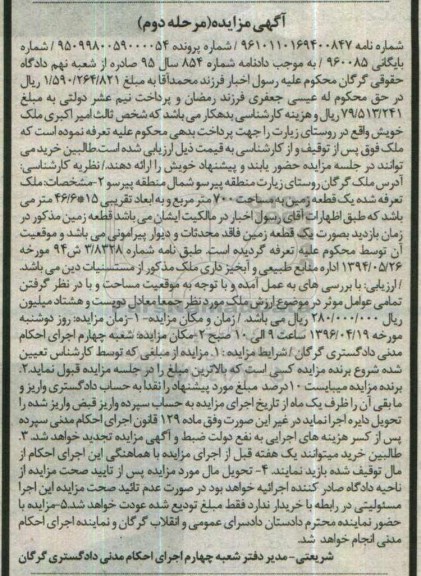 آگهی مزایده(مرحله دوم)
شماره نامه ۹۶۱۰۱۱۰۱۶۹۴۰۰۸۴۷ / شماره پرونده ۹۵۰۹۹۸۰۰۵۹۰۰۰۰۵۴ / شماره
بایگانی ۹۶۰۰۸۵ / به موجب دادنامه شماره ۸۵۴ سال ۹۵ صادره از شعبه نهم دادگاه
حقوقی گرگان محکوم علیه رسول اخبار فرزند محمدآقا به مبلغ ۱/۵۹۰/۲۶۴/۸۲۱ ریال
در حق محکوم له عیسی جعفری فرزند رمضان و پرداخت نیم عشر دولتی به مبلغ
۷۹/۵۱۳/۲۴۱ ریال و هزینه کارشناسی بدهکار می باشد که شخص ثالث امیر اکبری ملک
خویش واقع در روستای زیارت را جهت پرداخت بدهی محکوم علیه تعرفه نموده است که
ملک فوق پس از توقیف و از کارشناسی به قیمت ذیل ارزیابی شده است.طالبین خرید می
توانند در جلسه مزایده حضور یابند و پیشنهاد خویش را ارائه دهند/ نظریه کارشناسی:
آدرس ملک گرگان روستای زیارت منطقه پیرسو شمال منطقه پیرسو ۲-مشخصات: ملک
تعرفه شده یک قطعه زمین به مساحت ۷۰۰ متر مربع و به ابعاد تقریبی ۱۵*۴۶/۶ متر می
باشد که طبق اظهارات آقای رسول اخبار در مالکیت ایشان می باشد قطعه زمین مذکور در
زمان بازدید بصورت یک قطعه زمین فاقد محدثات و دیوار پیرامونی می باشد و موقعیت
آن توسط محکوم علیه تعرفه گردیده است. طبق نامه شماره ۳/۸۳۲۸ ش۹۴ مورخه
۱۳۹۴/۰۵/۲۶ اداره منابع طبیعی و آبخیز داری ملک مذکور از مستثنیات دین می باشد.
/ ارزیابی: با بررسی های به عمل آمده و با توجه به موقعیت مساحت و با در نظر گرفتن
تمامی عوامل موثر در موضوع ارزش ملک مورد نظر جمعا معادل دویست و هشتاد میلیون
ریال ۲۸۰/۰۰۰/۰۰۰ ریال می باشد. / زمان و مکان مزایده-۱-زمان مزایده: روز دوشنبه
مورخه ۱۳۹۶/۰۴/۱۹ ساعت ۹ الی ۱۰ صبح ۲-مکان مزایده: شعبه چهارم اجرای احکام
مدنی دادگستری گرگان / شرایط مزایده: ۱. مزایده از مبلغی که توسط کارشناس تعیین
شده شروع برنده مزایده کسی است که بالاترین مبلغ را در جلسه مزایده قبول نماید.۲.
برنده مزایده میبایست ۱۰ درصد مبلغ مورد پیشنهاد را نقدا به حساب دادگستری واریز و
ما بقی آن را ظرف یک ماه از تاریخ اجرای مزایده به حساب سپرده واریز قبض واریز شده را
تحویل دایره اجرا نماید در غیر این صورت وفق ماده ۱۲۹ قانون اجرای احکام مدنی سپرده
پس از کسر هزینه های اجرایی به نفع دولت ضبط و آگهی مزایده تجدید خواهد شد. ۳.
طالبین خرید میتوانند یک هفته قبل از اجرای مزایده با هماهنگی این اجرای احکام از
مال توقیف شده بازید نمایند. ۴- تحویل مال مورد مزایده پس از تایید صحت مزایده از
ناحیه دادگاه صادر کننده اجرائیه خواهد بود در صورت عدم تائید صحت مزایده این اجرا
مسئولیتی در رابطه با خریدار ندارد فقط مبلغ تودیع شده عودت خواهد شد.۵-مزایده با
حضور نماینده محترم دادستان دادسرای عمومی و انقلاب گرگان و نماینده اجرای احکام
مدنی انجام خواهد شد.
شریعتی- مدیر دفتر شعبه چهارم اجرای احکام مدنی دادگستری گرگان